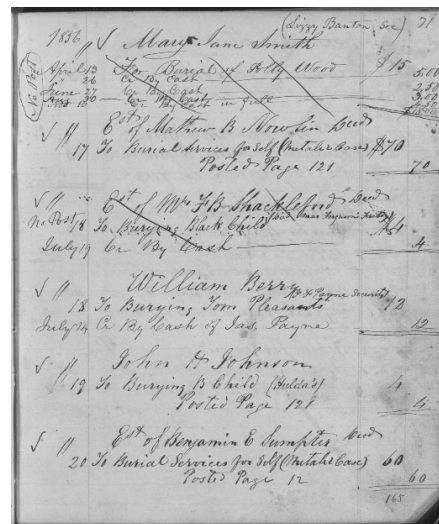 (Lizzy Banton, Sec) 71
1856 " √ Mary Jane Smith
No Post April 13 For Burial of Polly Wood $15
" 26 Cr By Cash 5,00
June 27 Cr By Cash 2,50
" 30 Cr By Cash 3,00
Cr By Cash in full
√ " Est of Mathew B Nowlin Decd
17 To Burial Services for Self (Metalic Case) $70
Posted Page 121 70
√ " Est of Mrs F B Shackleford Decd
No Post 18 To Burying Black Child $4
July 19 Cr By Cash 4
√ " William Berry
18 To Burying Tom Pleasants Payne Security 12
July 14 Cr By Cash of Jas. Payne 12
√ " John H Johnson
" 19 To Burying B Child (Hulda's) 4
Posted Page 121 4
√ " Est of Benjamin E Sumpter Decd
20 To Burial Services for Self (Metalic Case) 60
Posted Page 12 60
165